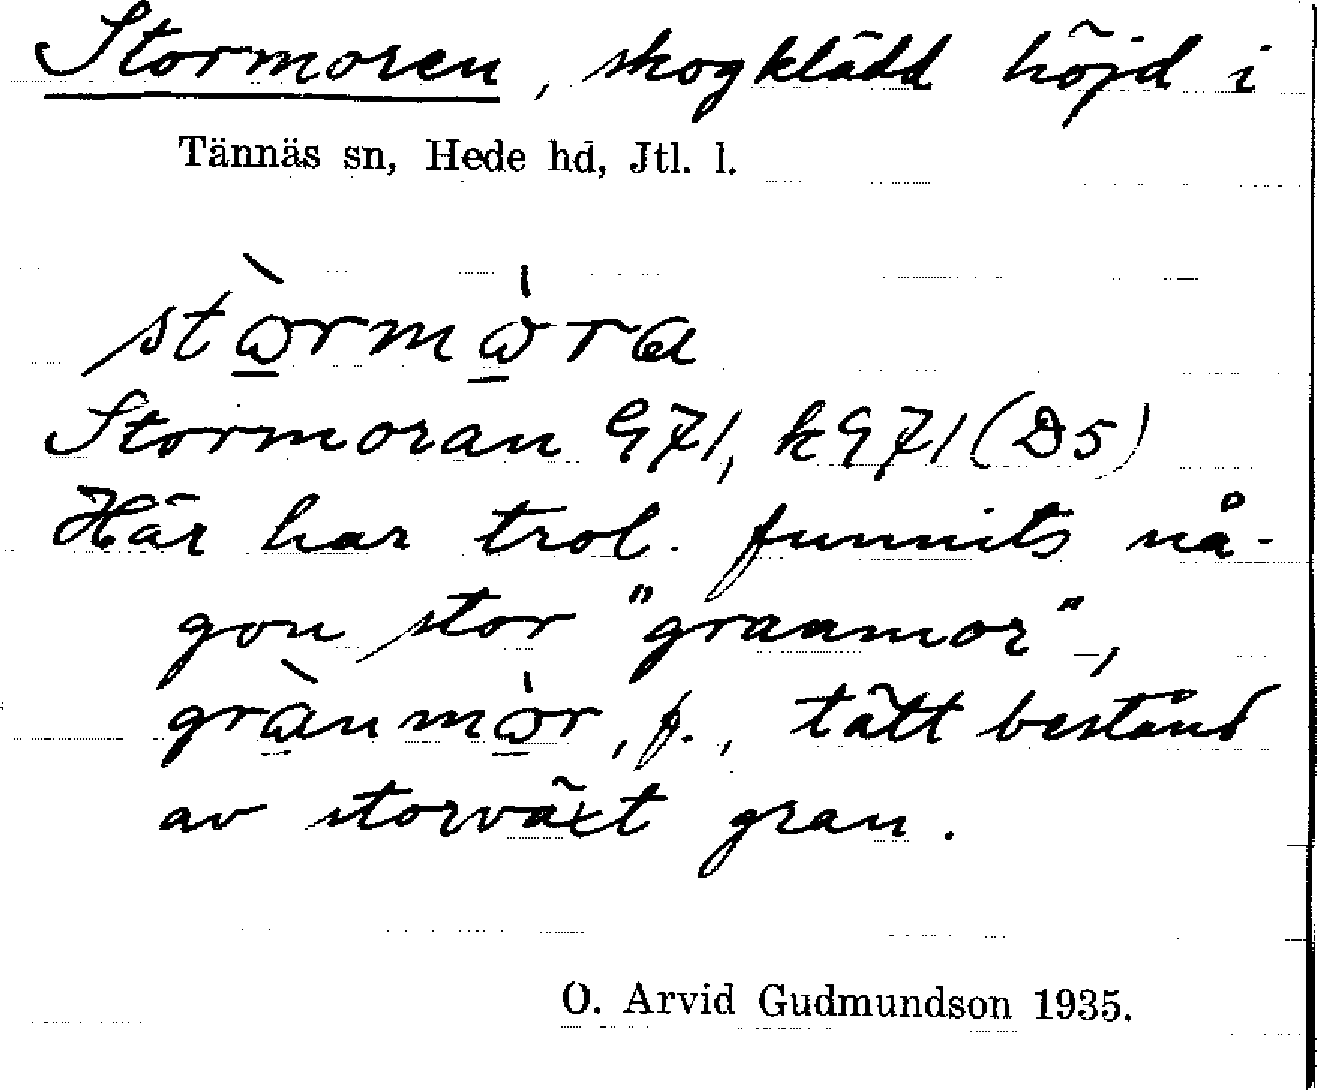 Stormoren, skogklädd höjd i
Tännäs sn, Hede hd, Jtl. l.
stòrmòra
Stormoran G71, kG71 (D5)
Här har trol. funnits nå-
gon stor "granmor",
grànmòr, f., tätt bestånd
av storväxt gran.
O. Arvid Gudmundson 1935.